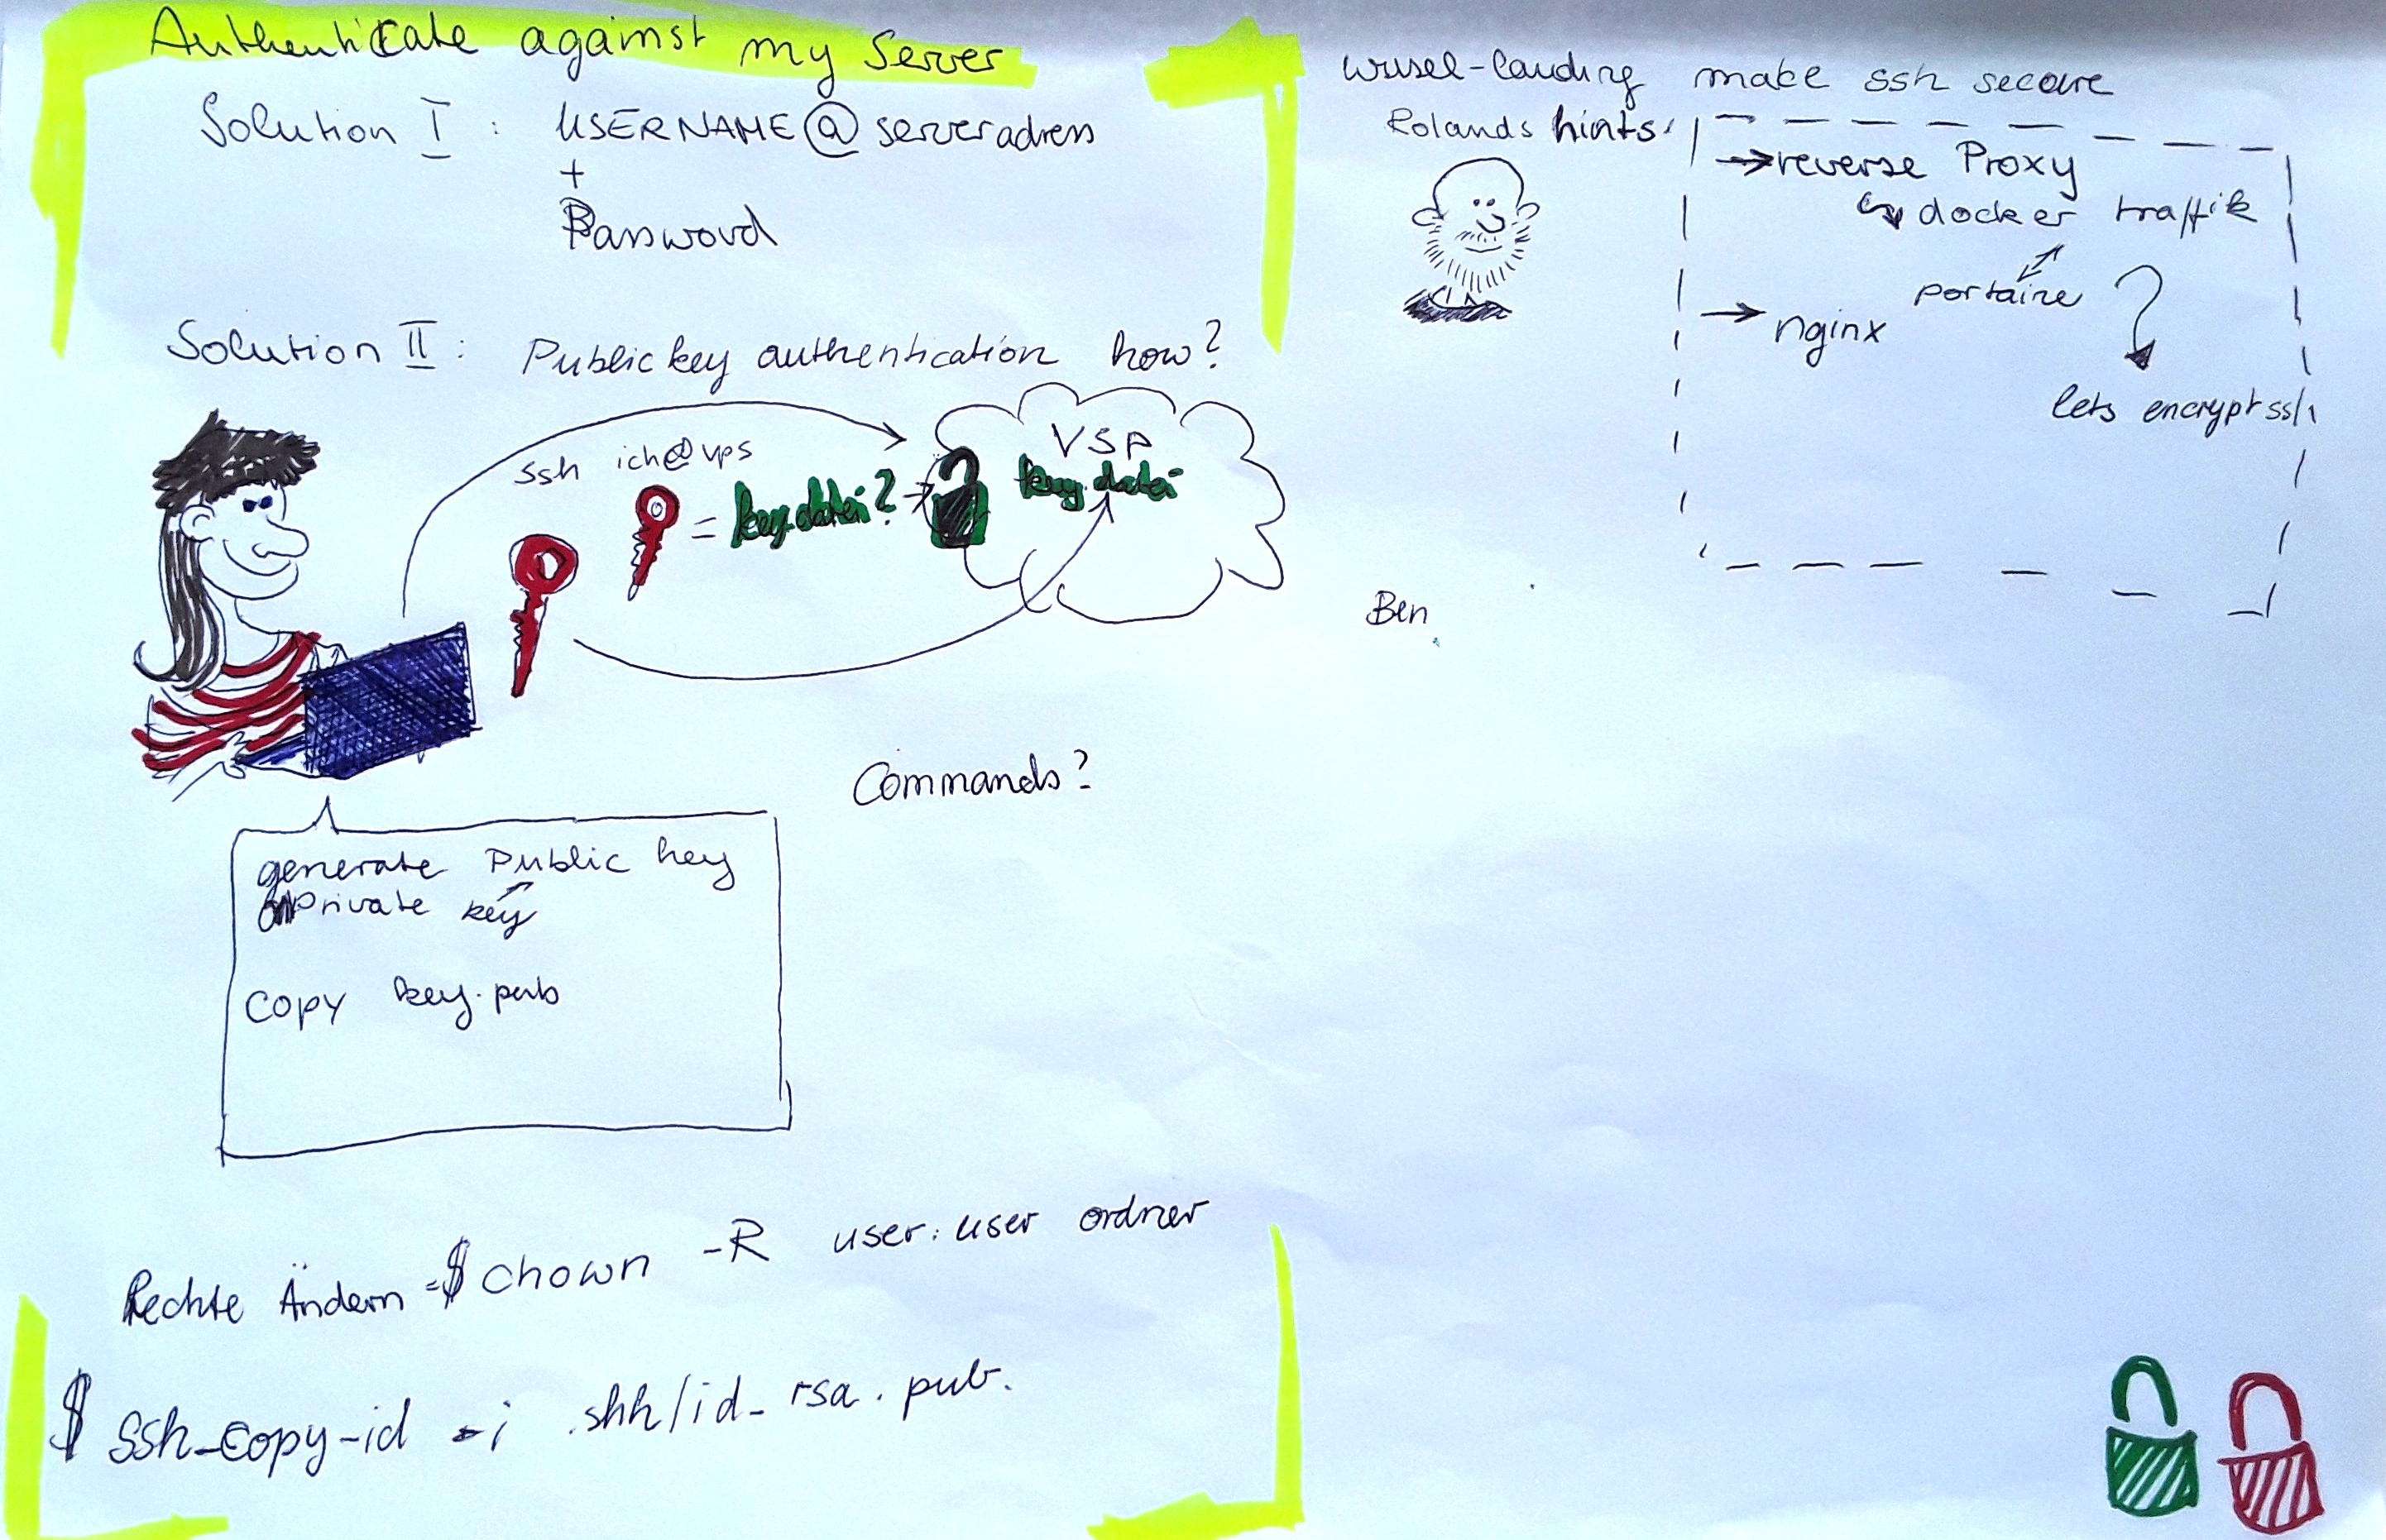 Authenticate against my Server
Solution I : USERNAME@serveradress
+
Password
Solution II : Public key authentication how?
ssh ich@vps
= key.datei?
VSP
key.datei
generate Public key
Private key
Copy key.pub
Commands?
Rechte Ändern = $ chown -R user:user ordner
$ ssh-copy-id -i .shh/id_rsa.pub.
make ssh secure
Rolands hints:
→ reverse Proxy
docker traffik
portaine
→ nginx
lets encrypt ssl
Ben